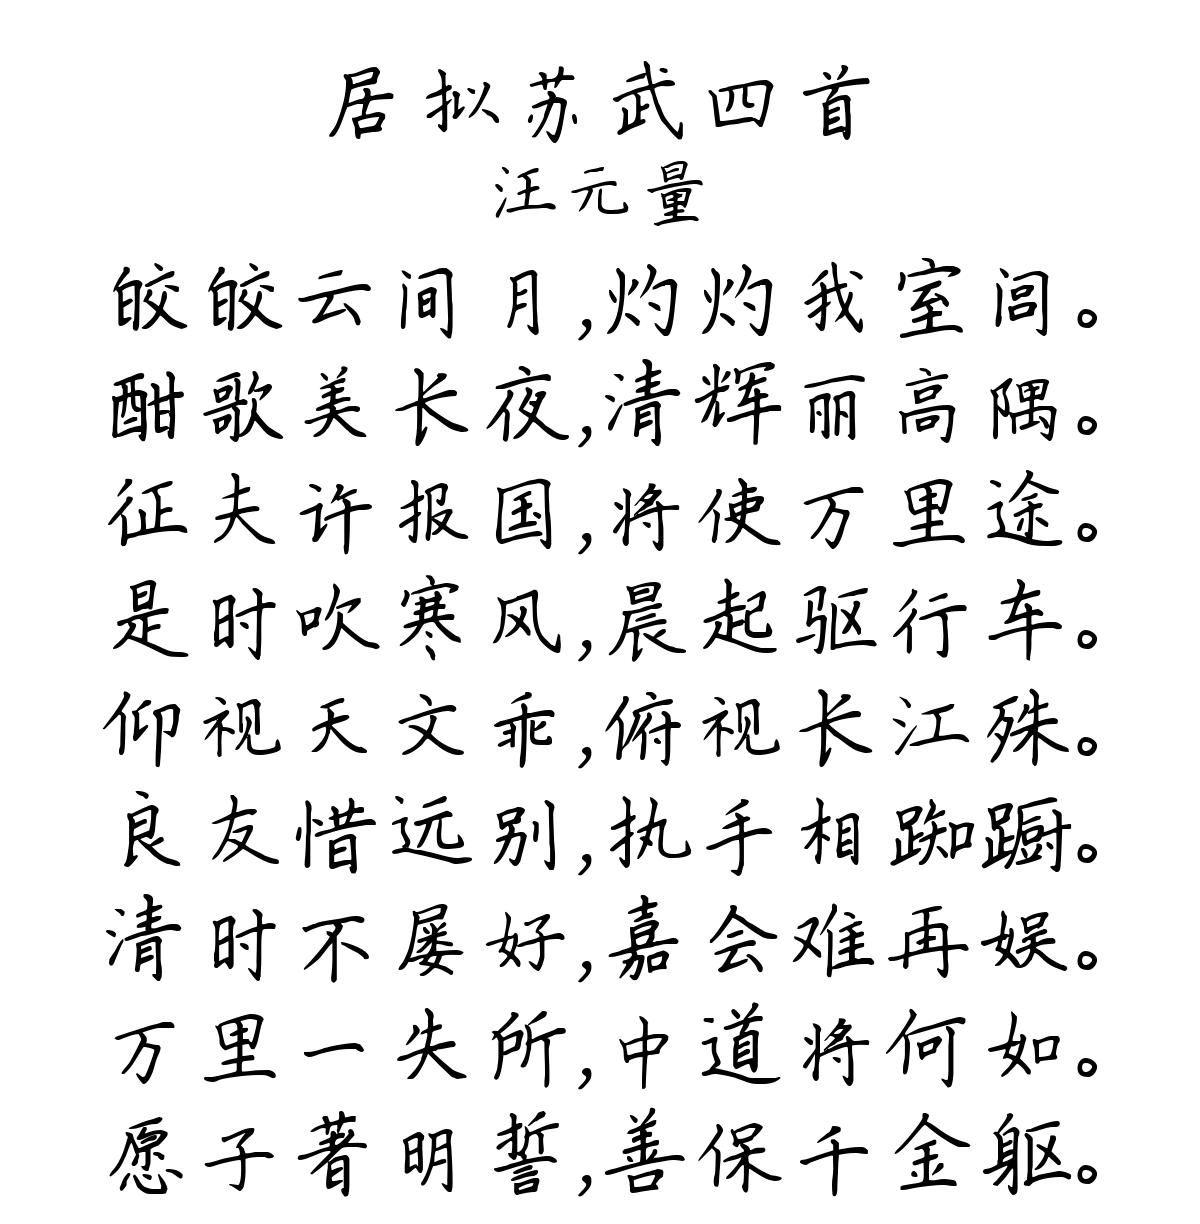 居拟苏武四首
汪元量
皎皎云间月,灼灼我室闾。
酣歌美长夜,清辉丽高隅。
征夫许报国,将使万里途。
是时吹寒风,晨起驱行车。
仰视天文乖,俯视长江殊。
良友惜远别,执手相踟蹰。
清时不屡好,嘉会难再娱。
万里一失所,中道将何如。
愿子著明誓,善保千金躯。